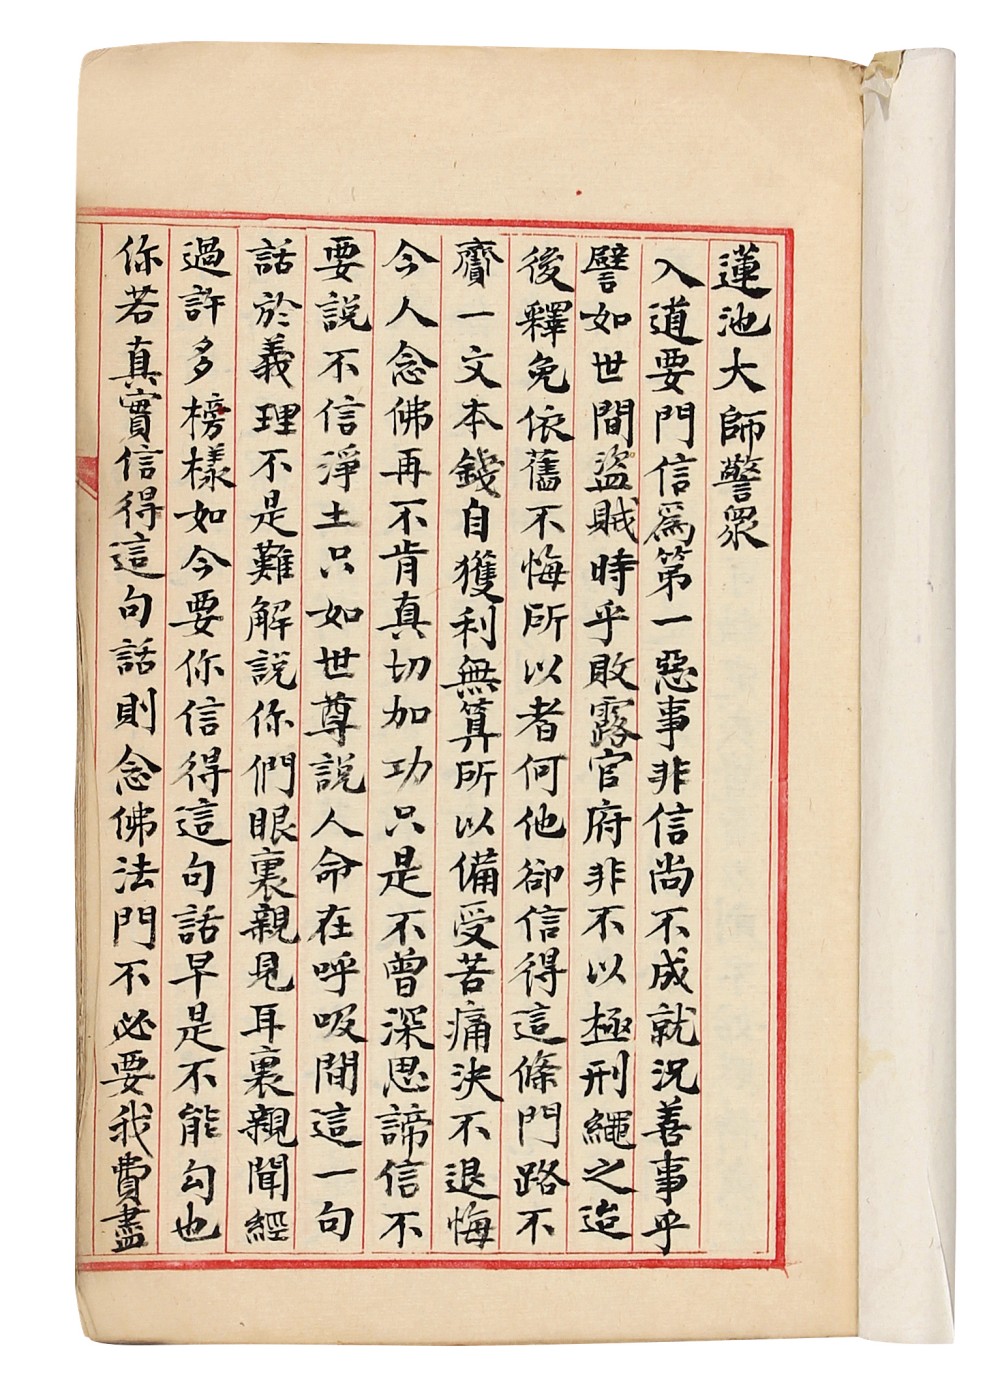 蓮池大師警眾
入道要門信為第一惡事非信尚不成就況善事乎
譬如世間盜賊時乎敗露官府非不以極刑繩之迨
後釋免依舊不悔所以者何他卻信得這條門路不
賷一文本錢自獲利無算所以備受苦痛決不退悔
今人念佛再不肯真切加功只是不曾深思諦信不
要說不信淨土只如世尊說人命在呼吸間這一句
話於義理不是難解說你們眼裏親見耳裏親聞經
過許多榜樣如今要你信得這句話早是不能勾也
你若真實信得這句話則念佛法門不必要我費盡